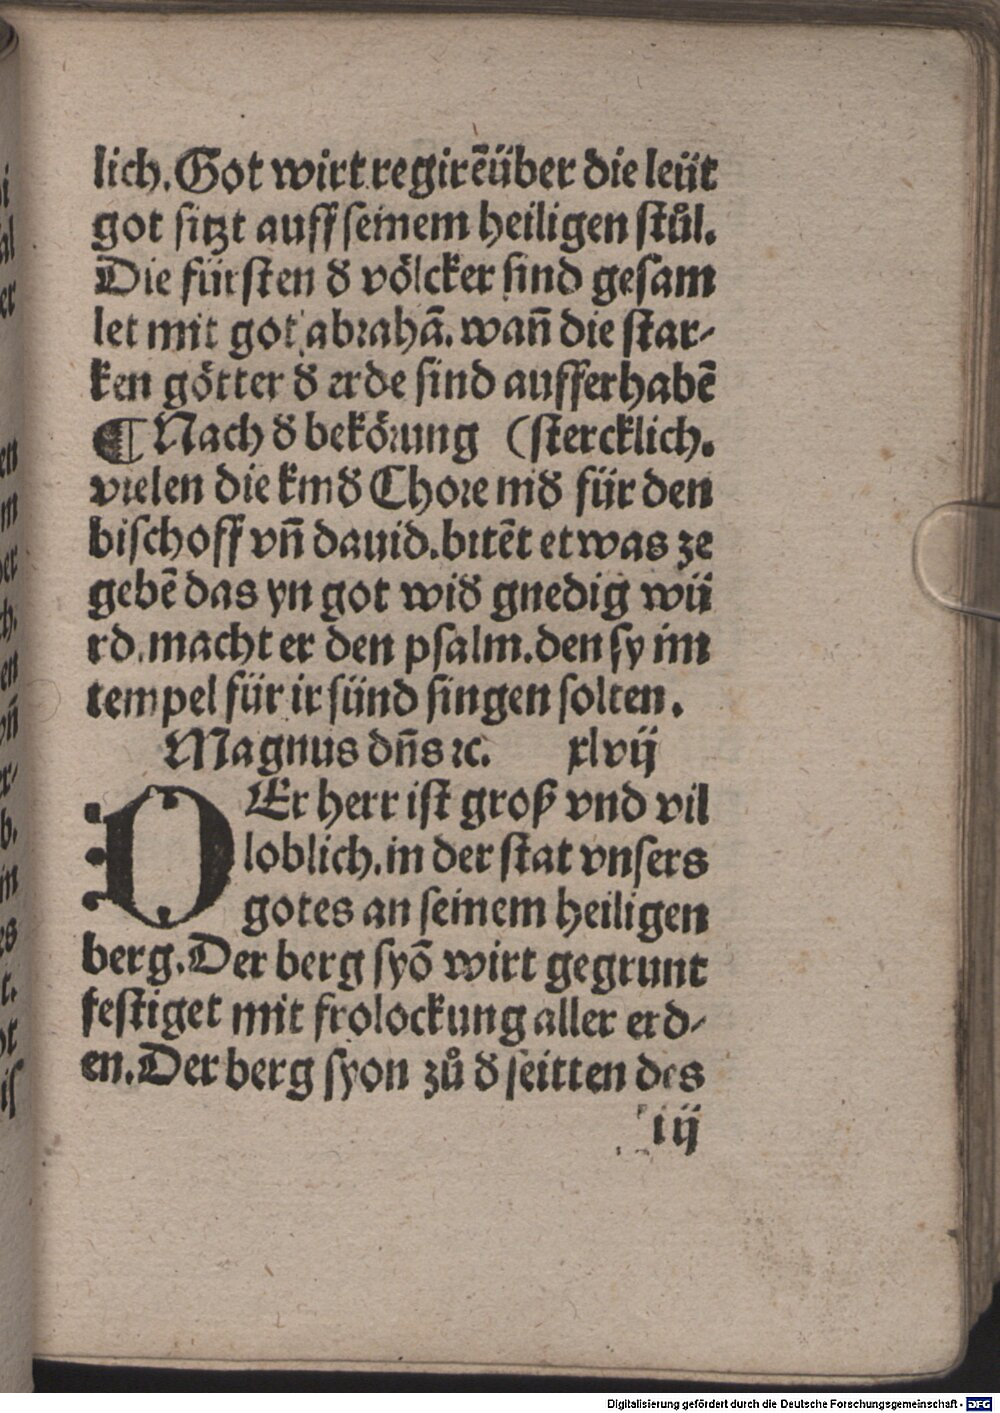 lich. Got wirt regirē über die leüt
got sitzt auff seinem heiligen stůl.
Die fürsten đ völcker sind gesam
let mit got abrahā. wañ die star-
ken götter đ erde sind aufferhabē
¶ Nach đ bekörung (stercklich.
vielen die kinđ Chore niđ für den
bischoff vñ dauid. bitēt etwas ze
gebē das yn got wiđ gnedig wü
rd. macht er den psalm. den sy im
tempel für ir sünd singen solten.
Magnus dñs ꝛc. xlvij
DEr herr ist groß vnd vil
loblich. in der stat vnsers
gotes an seinem heiligen
berg. Der berg syō wirt gegrunt
festiget mit frolockung aller erd-
en. Der berg syon zů đ seitten des
i ij
Digitalisierung gefördert durch die Deutsche Forschungsgemeinschaft - DFG